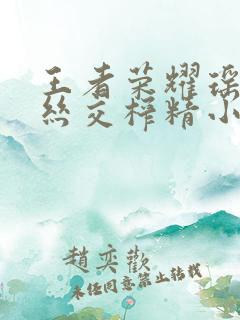 王者荣耀瑶
丝交榨精小
趙奕歡
未经同意禁止转载